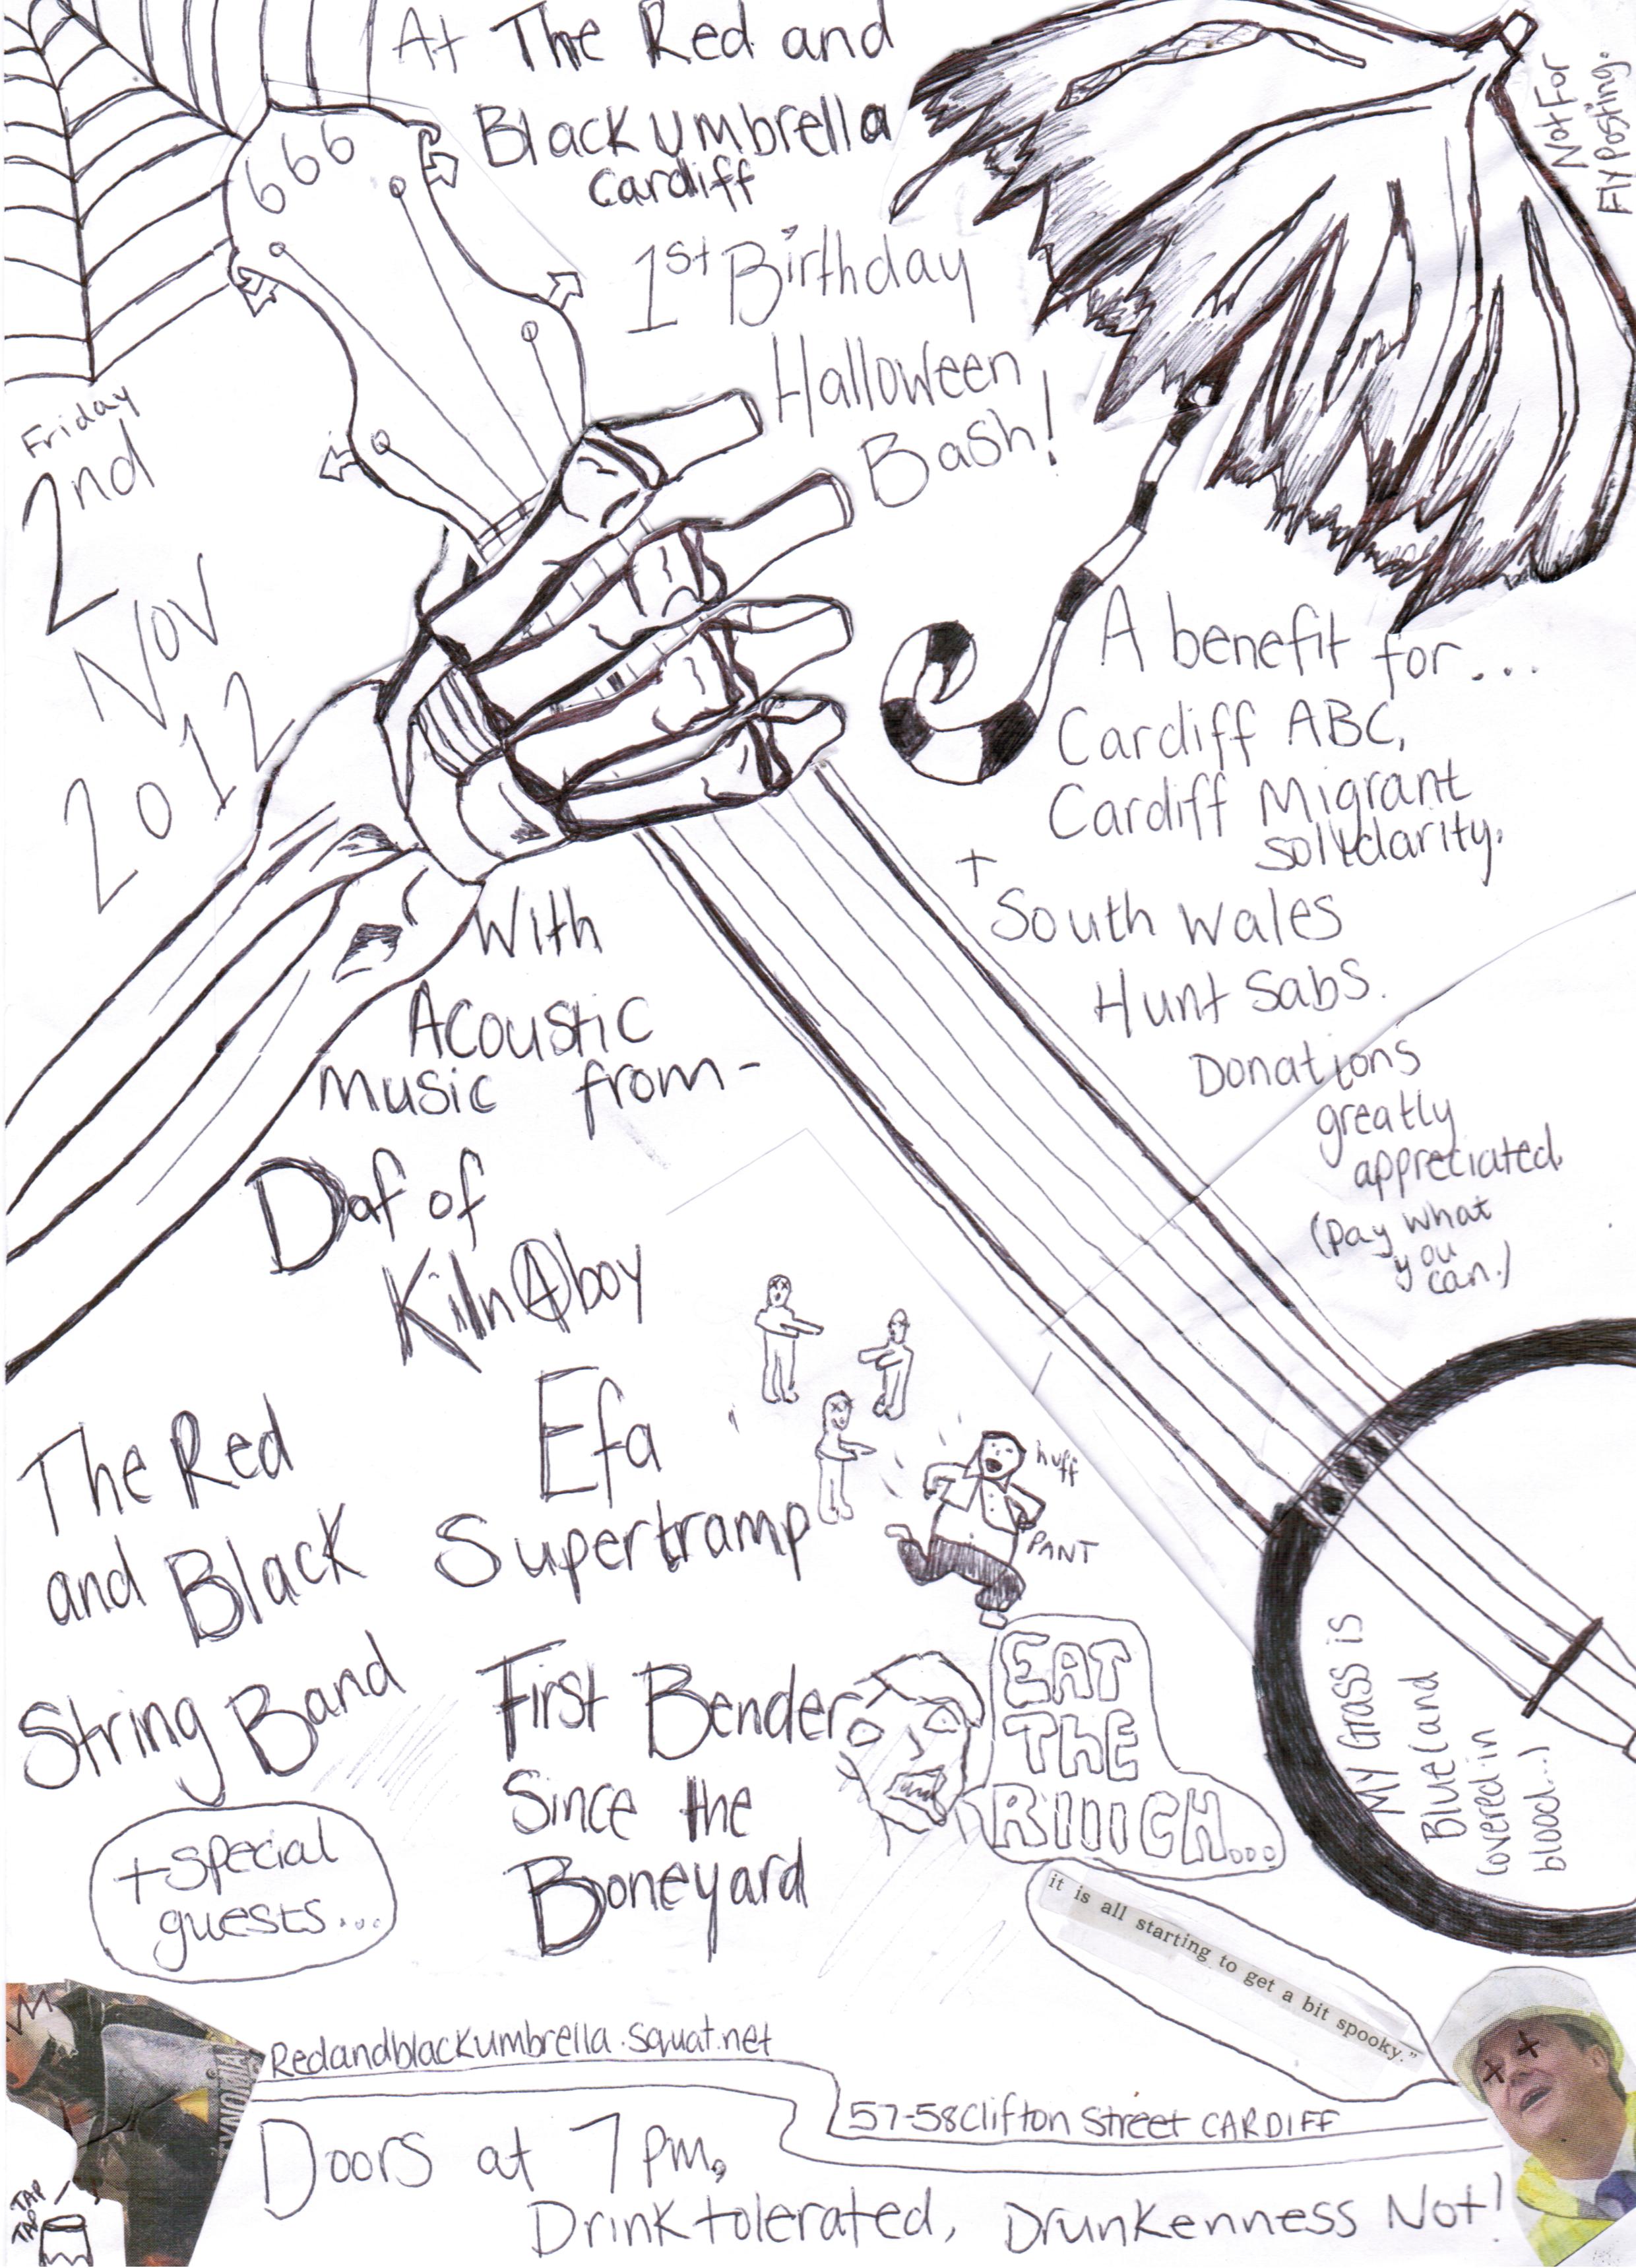 At The Red and
Black Umbrella
Cardiff
1st Birthday
Halloween
Bash!
Not For
Flyposting.
666
Friday
2nd
Nov
2012
A benefit for...
Cardiff ABC,
Cardiff Migrant
solidarity.
+
South Wales
Hunt Sabs.
Donations
greatly
appreciated.
(Pay what
you
can.)
With
Acoustic
Music from-
Daf of
KilnⒶboy
The Red
and Black
String Band
Efa
Supertramp
huff
PANT
First Bender
Since the
Boneyard
EAT
THE
RIIICH...
+ special
guests...
My Grass is
Blue (and
covered in
blood...)
it is all starting to get a bit spooky."
Redandblackumbrella.squat.net
57-58 Clifton Street CARDIFF
Doors at 7pm,
Drink tolerated, Drunkenness Not!
TAP
TAP